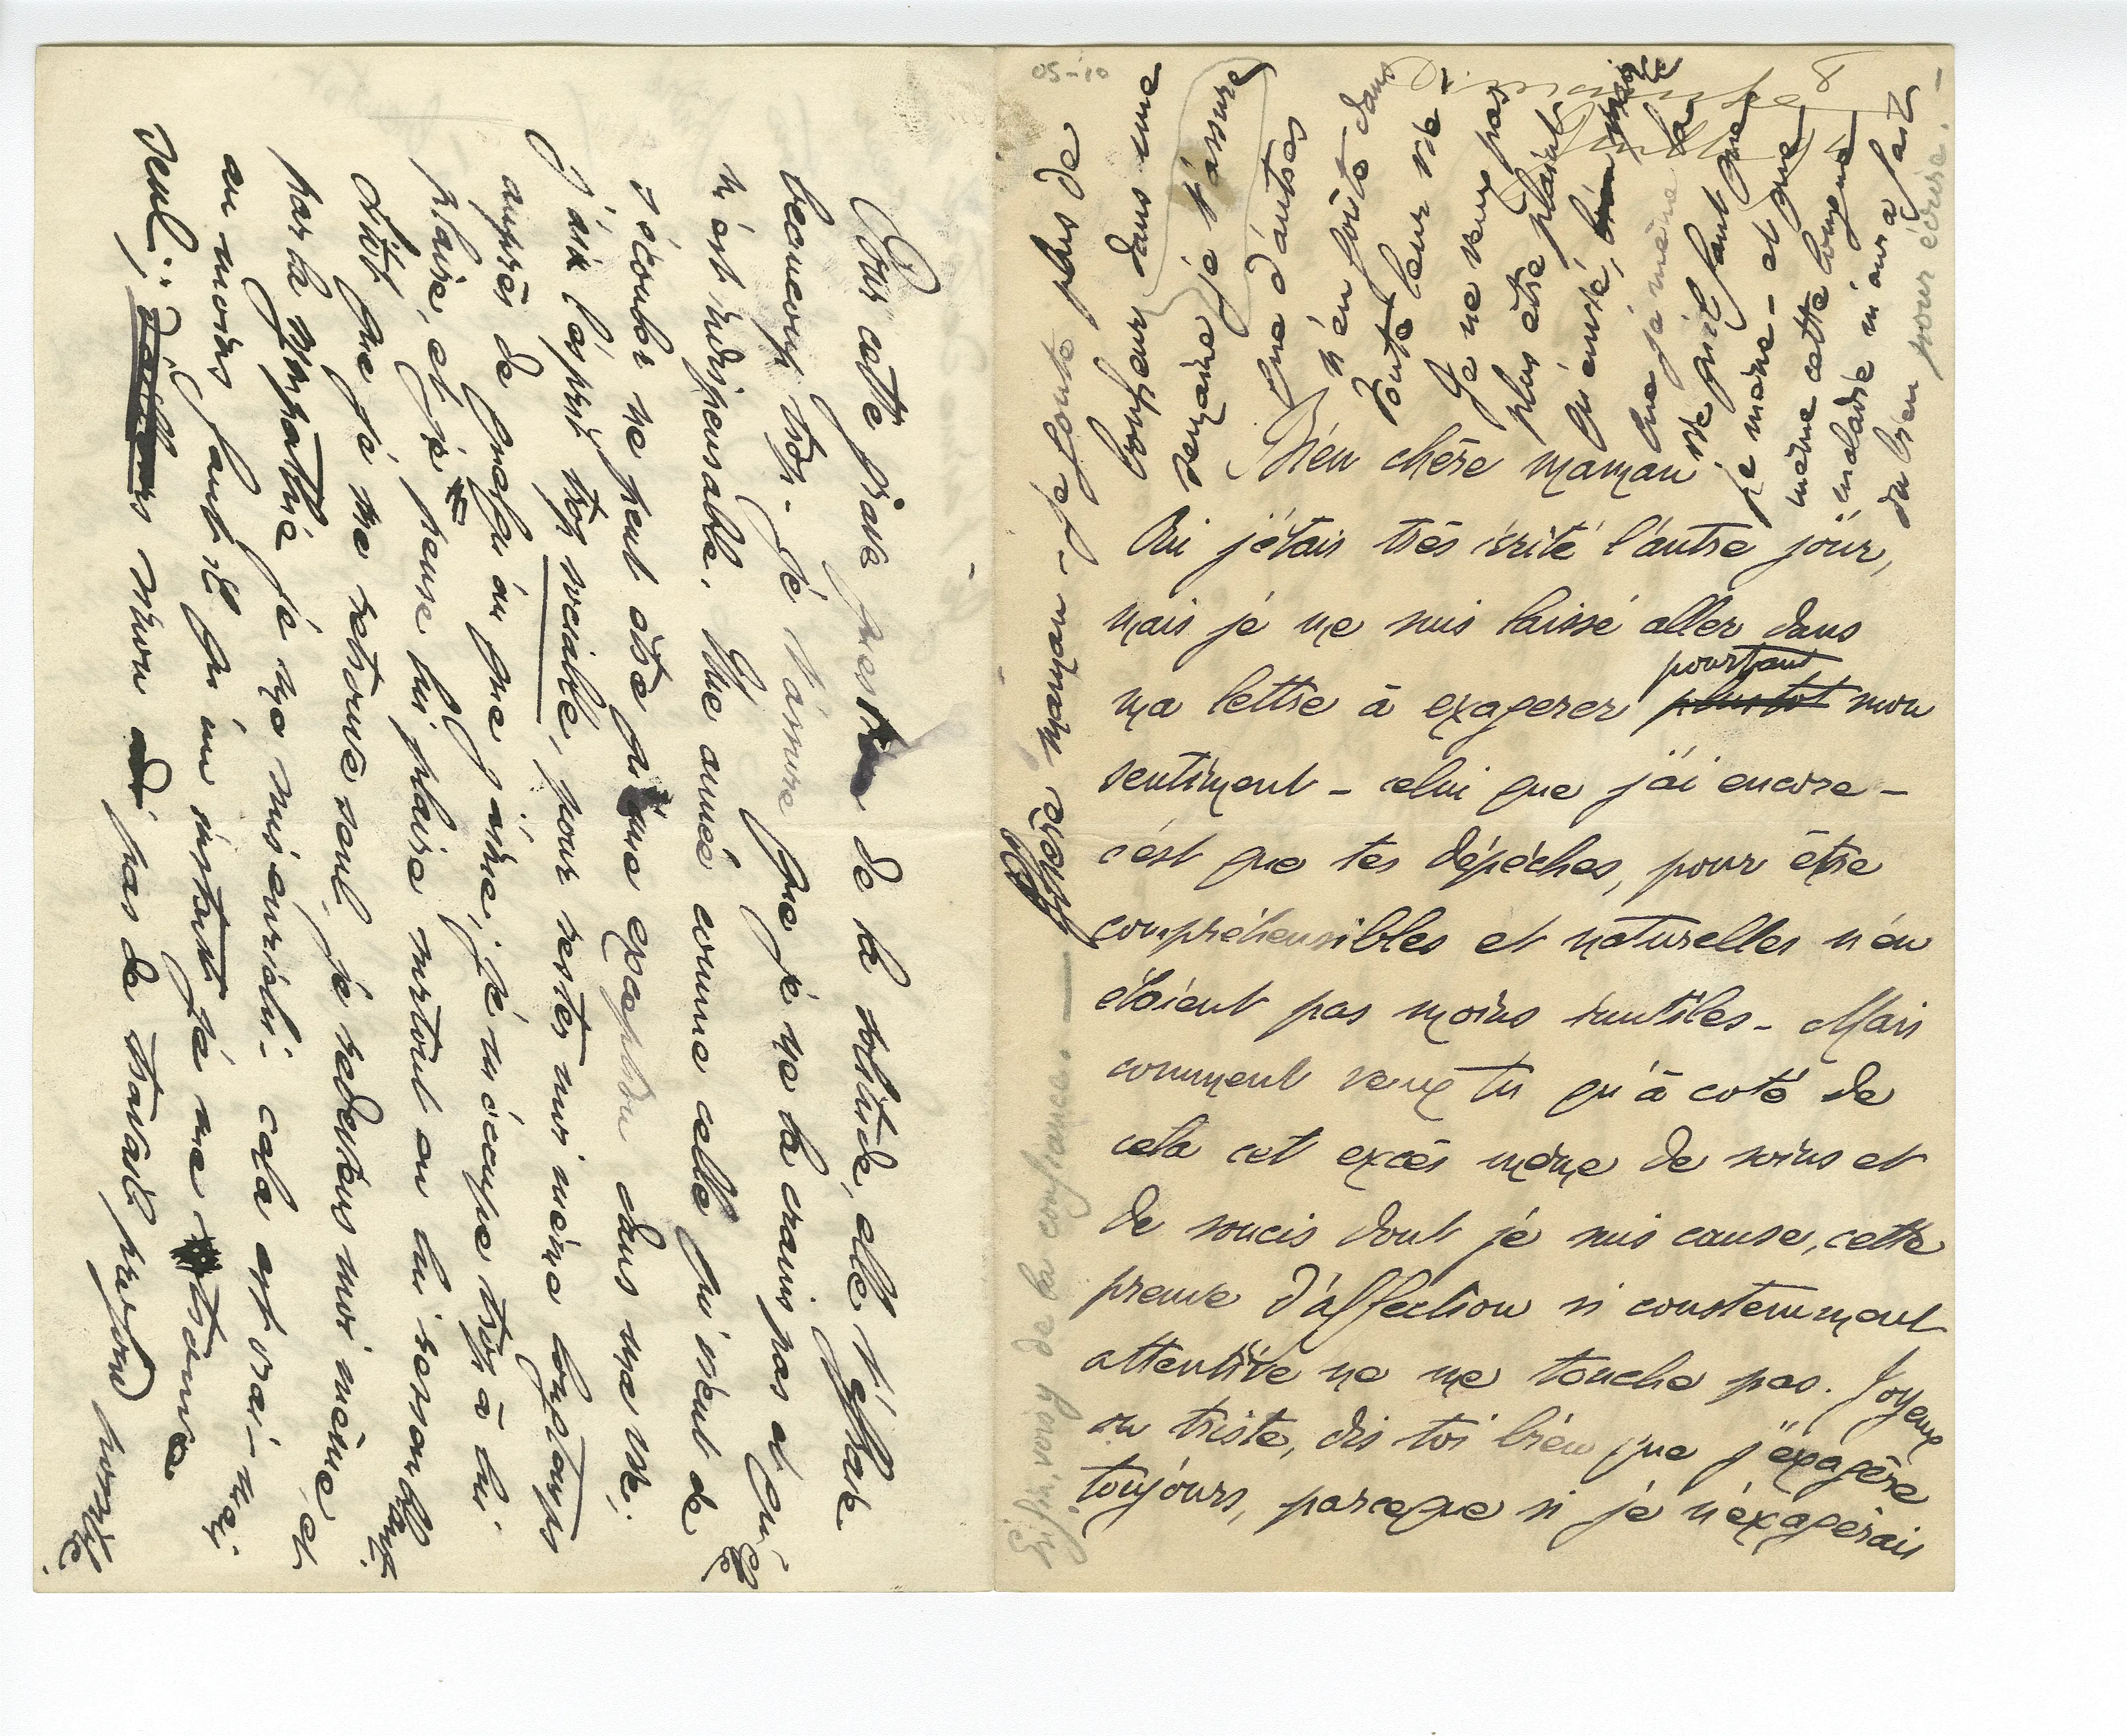 05-10
Bien chère maman
Oui j'étais très irrité l'autre jour,
mais je me suis laissé aller dans
ma lettre à exagerer pourtant mon
sentiment - celui que j'ai encore -
c'est que tes dépéches, pour être
compréhensibles et naturelles n'en
étaient pas moins inutiles - Mais
comment veux tu qu'à coté de
cela cet excés même de soins et
de soucis dont je suis cause, cette
preuve d'affection si constemment
attentive ne me touche pas. Joyeux
ou triste, dis toi bien que j'exagère
toujours, parceque si je n'exagérais
Pour cette fois de la solitude, elle t'effraie
beaucoup trop. Je t'assure que je ne la crains pas et qu'elle
m'est indispensable. Une année comme celle qui vient de
s'écouler ne peut être qu'une exception dans ma vie.
J'ai l'esprit trop sociable, pour rester moi même longtemps
auprès de quelqu'un que j'aime; je m'occupe trop à lui
plaire, et je pense lui plaire surtout en lui ressemblant.
Sitôt que je me retrouve seul, je redeviens moi même, et
par la sympathie je me suis enrichi - cela est vrai - mais
au moins faut il qu'un instant je me retrouve
seul; sinon pas de travail profond possible.
Chère maman - je goute plus de
bonheur dans une
semaine je t'assure
que d'autres
n'en goûte dans
toute leur vie -
Je ne veux pas
plus être plaint
qu'envié,
que j'aime la
vie qu'il faut que
je mène - et que
même cette longue
maladie m'aura fait
du bien pour écrire.
Enfin, vois y de la confiance. —